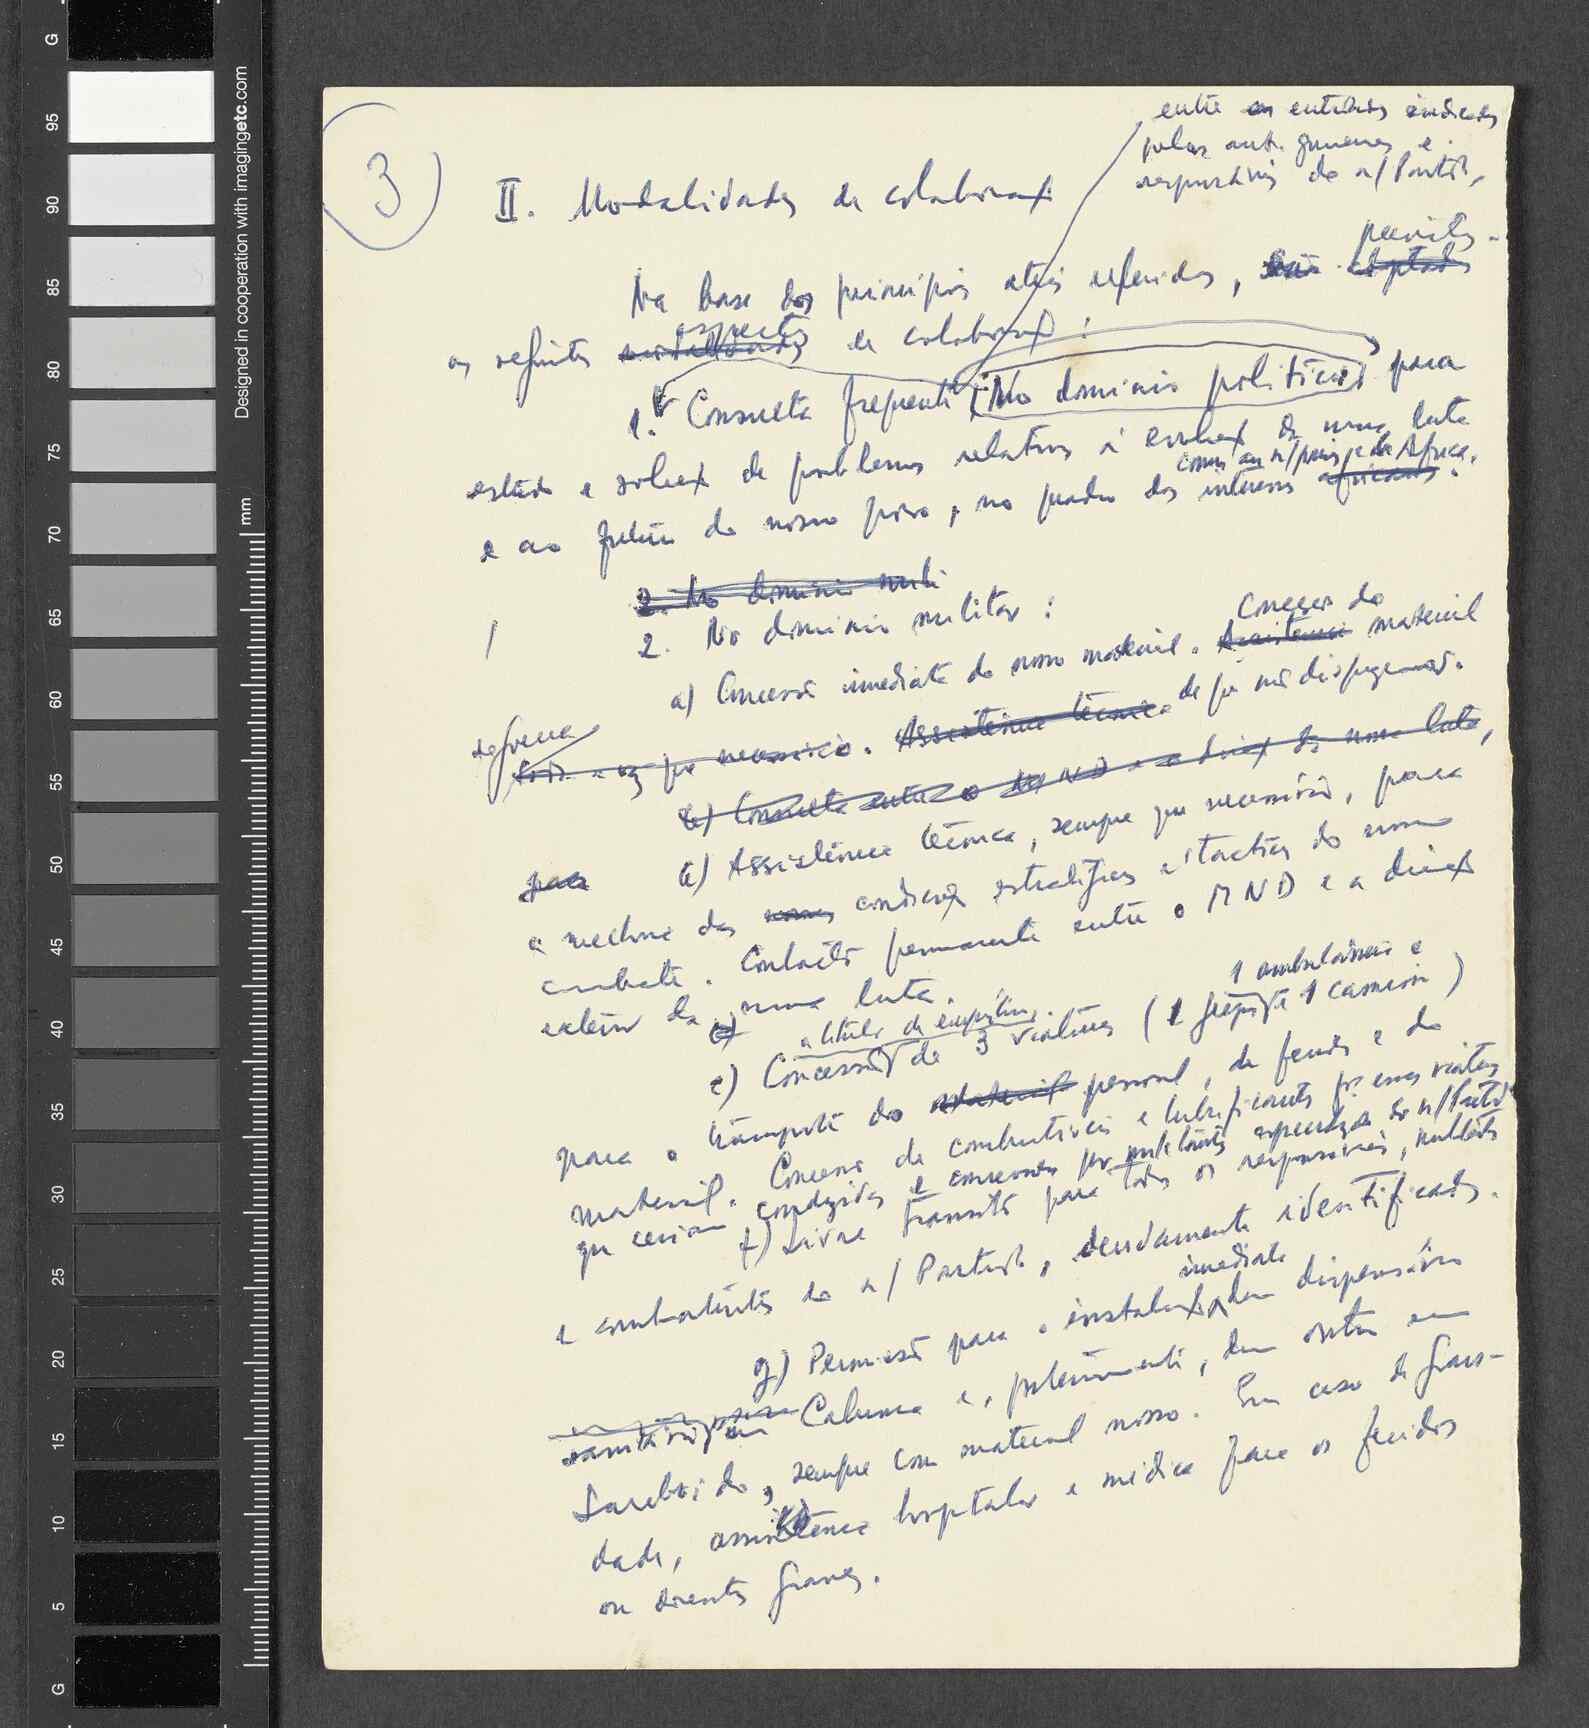 3
entre as entidades indicadas
pelas aut. guineenses e
responsáveis do n/Partido,
II. Modalidades de colaboraç
Na base dos princípios atrás referidos, são adoptados previstos
os seguintes modalidades aspectos de colaboraç :
1. Consulta frequente No domínio político, para
estudo e soluç de problemas relativos à evoluç da nossa luta
e ao futuro do nosso povo, no quadro dos interesses africanos. comuns ao n/país e da África.
2. No domínio mili
2. No domínio militar :
a) Concessão imediata do nosso material. Assistência Concessão do material
de que não dispugermos.
defesa
toda a vez que necessário. Assistência técnica
b) Consulta entre o MND e a direcç da nossa luta,
para b) Assistência técnica, sempre que necessário, para
a melhoria das nossas condições estratégicas e tácticas do nosso
combate. Contacto permanente entre o MND e a direcç
exterior da nossa luta.
c)
a título de empréstimo
1 ambulância e
c) Concessão de 3 viaturas (1 jeep, 1 camion)
para o transporte do material pessoal, de feridos e do
material. Concessão de combustíveis e lubrificantes p/ essas viaturas
que seriam conduzidas e conservadas por militantes especializados do n/Partido
f) Livre trânsito para todos os responsáveis, militantes
e combatentes do n/Partido, devidamente identificados.
g) Permissão para a instalaç imediata dum dispensário
sanitário em Calunca e, posteriormente, dum outro em
Sareboido, sempre com material nosso. Em caso de gravi-
dade, assistência hospitalar e médica para os feridos
ou doentes graves.
Designed in cooperation with imagingetc.com
mm
G
95
90
85
80
75
70
65
60
55
50
45
40
35
30
25
20
15
10
5
G